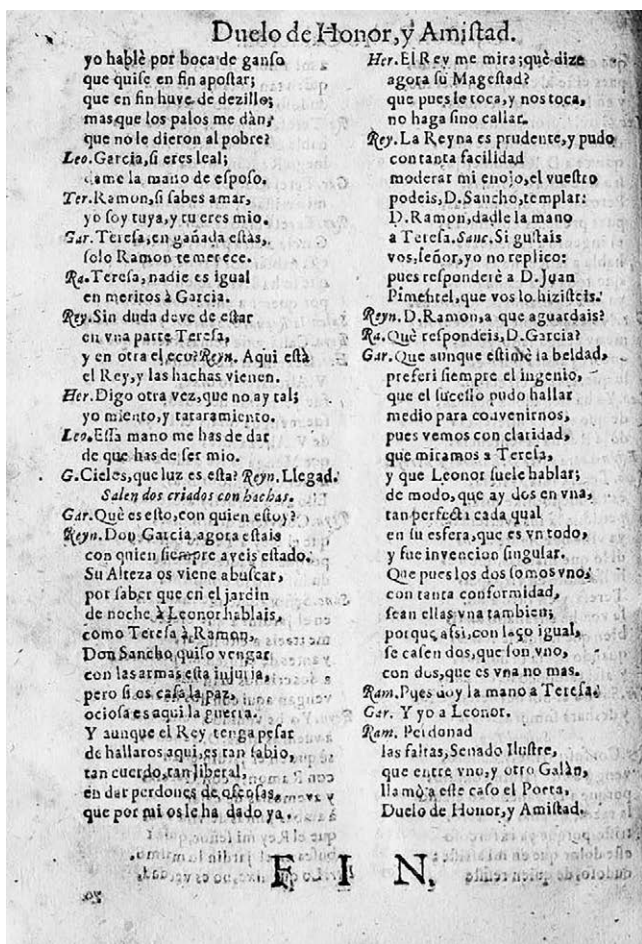 Duelo de Honor, y Amistad.
yo hablè por boca de ganso
que quise en fin apostar;
que en fin huve de dezillo;
mas que los palos me dàn,
que no le dieron al pobre?
Leo. Garcia, si eres leal;
dame la mano de esposo.
Ter. Ramon, si sabes amar,
yo soy tuya, y tu eres mio.
Gar. Teresa, en gañada estàs,
solo Ramon te merece.
Ra. Teresa, nadie es igual
en meritos à Garcia.
Rey. Sin duda deve de estar
en vna parte Teresa,
y en otra el eco? Reyn. Aqui està
el Rey, y las hachas vienen.
Her. Digo otra vez, que no ay tal;
yo miento, y tataramiento.
Leo. Essa mano me has de dar
de que has de ser mio.
G. Cielos, que luz es esta? Reyn. Llegad.
Salen dos criados con hachas.
Gar. Què es esto, con quien estoy?
Reyn. Don Garcia, agora estais
con quien siempre aveis estado.
Su Alteza os viene a buscar,
por saber que en el jardin
de noche à Leonor hablais,
como Teresa à Ramon,
Don Sancho quiso vengar
con las armas esta injuria,
pero si os casa la paz,
ociosa es aqui la guerra.
Y aunque el Rey tenga pesar
de hallaros aqui, es tan sabio,
tan cuerdo, tan liberal,
en dar perdones de
que por mi os le ha dado ya.
Her. El Rey me mira; què dize
agora su Magestad?
que pues le toca, y nos toca,
no haga sino callar.
Rey. La Reyna es prudente, y pudo
con tanta facilidad
moderar mi enojo, el vuestro
podeis, D. Sancho, templar:
D. Ramon, dadle la mano
a Teresa. Sanc. Si gustais
vos, señor, yo no replico:
pues responderè a D. Juan
Pimentel, que vos lo hizisteis.
Reyn. D. Ramon, a que aguardais?
Ra. Què respondeis, D. Garcia?
Gar. Que aunque estimè la beldad,
preferi siempre el ingenio,
que el sucesso pudo hallar
medio para convenirnos,
pues vemos con claridad,
que miramos a Teresa,
y que Leonor suele hablar;
de modo, que ay dos en vna,
tan perfecta cada qual
en su esfera, que es vn todo,
y fue invencion singular.
Que pues los dos somos vno,
con tanta conformidad,
sean ellas vna tambien;
porque assi, con laço igual,
se casen dos, que son vno,
con dos, que es vna no mas.
Ram. Pues doy la mano a Teresa.
Gar. Y yo a Leonor.
Ram. Perdonad
las faltas, Senado Ilustre,
que entre vno, y otro Galàn,
llamò a este caso el Poeta,
Duelo de Honor, y Amistad.
FIN.